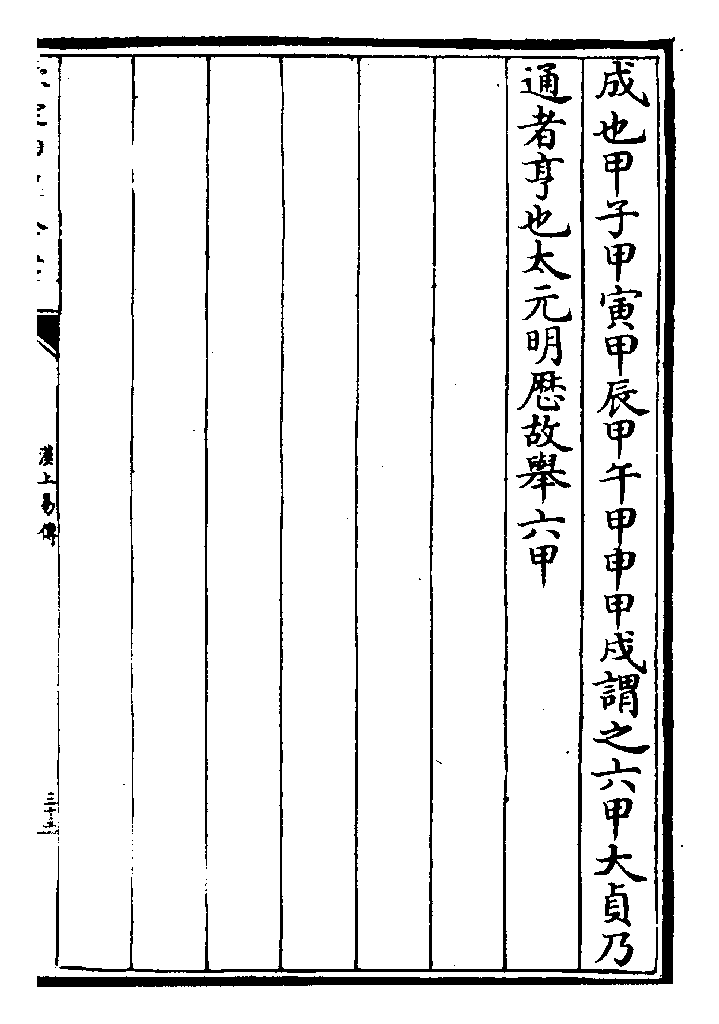 成也甲子甲寅甲辰甲午甲申甲戌謂之六甲大貞乃
通者亨也太元明厯故舉六甲
漢上易傳